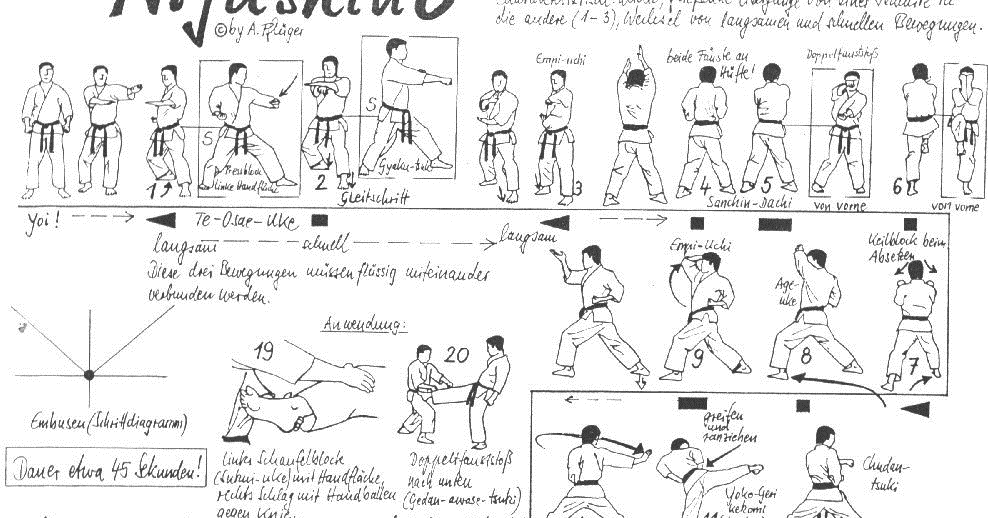 © by A. Pflüger
die andere (1-3), Wechsel von langsamen und schnellen Bewegungen.
Empi-uchi
beide Fäuste an
Hüfte!
Doppelfauststoß
S
S
1
linke Handfläche
2
Gyaku-tsuki
Gleitschritt
3
4
5
Sanchin-Dachi
von vorne
6
von vorne
Yoi!
Te-Osae-Uke
langsam
schnell
langsam
Diese drei Bewegungen müssen flüssig miteinander
verbunden werden.
Empi-Uchi
9
Age-
uke
8
Keilblock beim
Absetzen
7
Anwendung:
19
20
Embusen (Schrittdiagramm)
Dauer etwa 45 Sekunden!
Linker Schaufelblock
mit Handfläche,
rechts Schlag mit Handballen
gegen Knie
Doppelfauststoß
nach unten
(Gedan-awase-tsuki)
greifen
und
ranziehen
Yoko-Geri
kekomi
11
Chudan-
tsuki